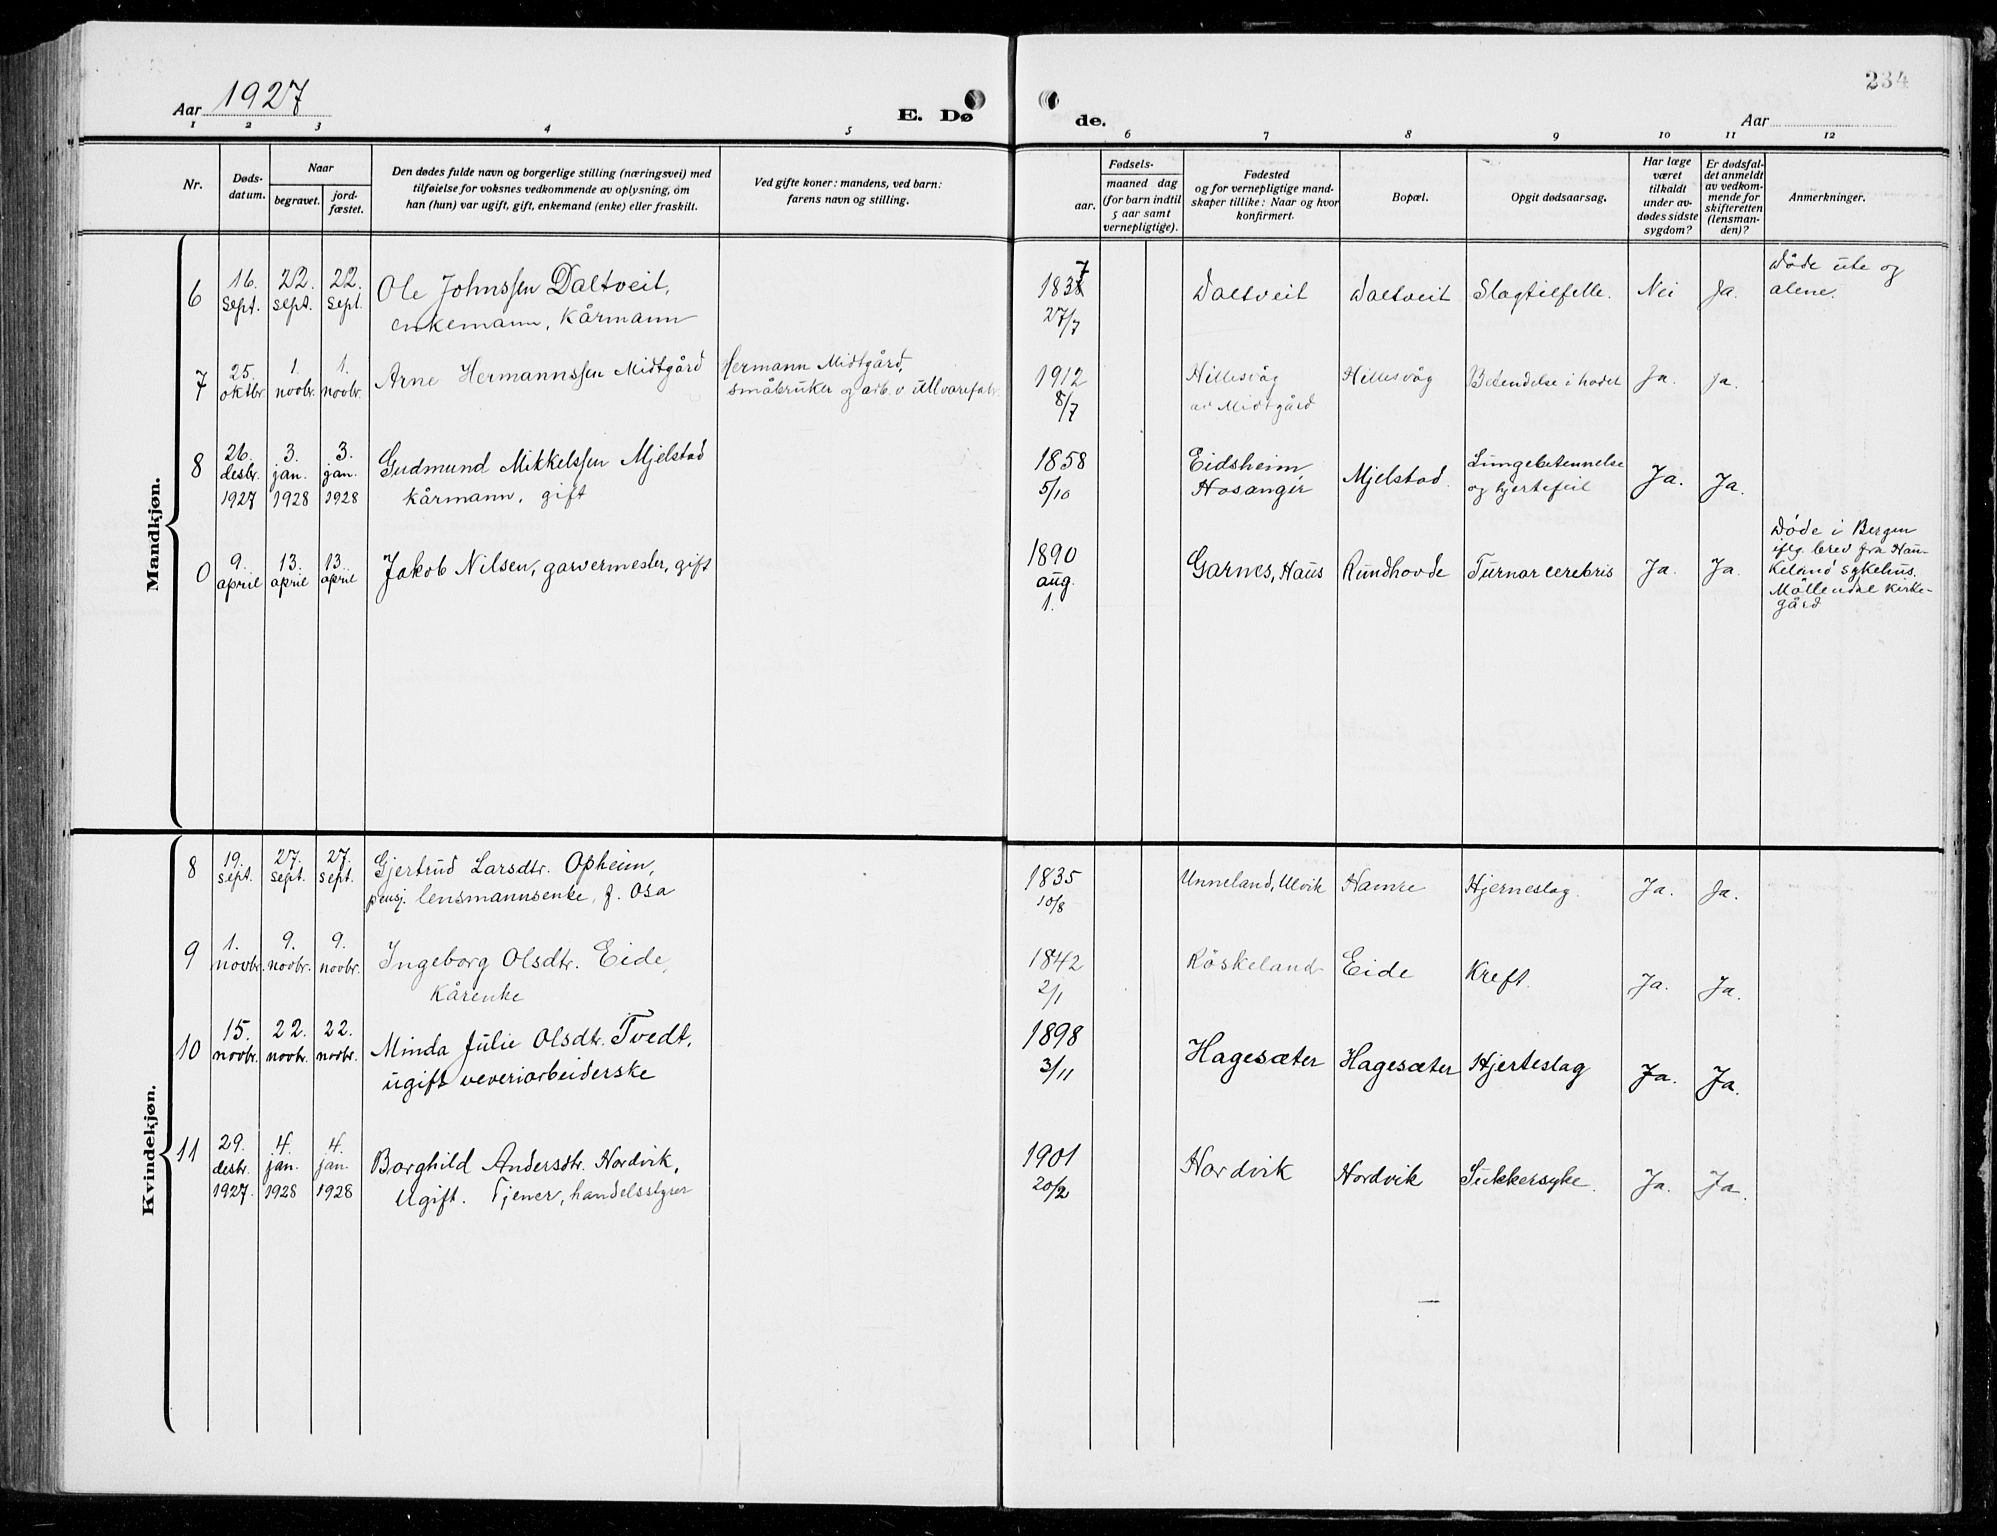 Aar 1927
E. Dø
de.
Aar
234
1 2 3 4 5 6 7 8 9 10 11 12
Nr.
Døds-
datum.
Naar
begravet.
jord-
fæstet.
Den dødes fulde navn og borgerlige stilling (næringsvei) med
tilføielse for voksnes vedkommende av oplysning, om
han (hun) var ugift, gift, enkemand (enke) eller fraskilt.
Ved gifte koner: mandens, ved barn:
farens navn og stilling.
Fødsels-
aar.
maaned dag
(for barn indtil
5 aar samt
vernepligtige).
Fødested
og for vernepligtige mand-
skaper tillike: Naar og hvor
konfirmert.
Bopæl.
Opgit dødsaarsag.
Har læge
været
tilkaldt
under av-
dødes sidste
sygdom?
Er dødsfal-
det anmeldt
av vedkom-
mende for
skifteretten
(lensman-
den)?
Anmerkninger.
Mandkjøn.
6 16. sept. 22. sept. 22. sept. Ole Johnssen Daltveit,
enkemann, kårmann
1837 27/7 Daltveit Daltveit Slagtilfelle. Nei Ja.
Døde ute og
alene.
7 25. oktbr. 1. novbr. 1. novbr. Arne Hermannssen Midtgård
Hermann Midtgård,
småbruker og arb. v. ullvarefabr.
1912 8/7 Hillesvåg
av Midtgård
Hillesvåg Betendelse i hodet Ja. Ja.
8 26. desbr. 1927 3. jan. 1928 3. jan. 1928 Gudmund Mikkelssen Mjelstad
kårmann, gift
1858 5/10 Eidsheim
Hosanger
Mjelstad. Lungebetennelse
og hjertefeil
Ja. Ja.
0 9. april 13. april 13. april Jakob Nilsen, garvermester, gift
1890 aug. 1. Garnes, Haus Rundhovde Tumar cerebris Ja. Ja.
Døde i Bergen
iflg. brev fra Hau-
keland sykehus.
Møllendal kirke-
gård
Kvindekjøn.
8 19. sept. 27. sept. 27. sept. Gjertrud Larsdtr. Opheim,
pensj. lensmannsenke, f. Osa
1835 10/8 Unneland, Ulvik Hamre Hjerneslag. Ja. Ja.
9 1. novbr. 9. novbr. 9. novbr. Ingeborg Olsdtr. Eide,
kårenke
1842 2/1 Røskeland Eide Kreft. Ja. Ja.
10 15. novbr. 22. novbr. 22. novbr. Minda Julie Olsdtr. Tvedt,
ugift veveriarbeiderske
1898 3/11 Hagesæter Hagesæter Hjerteslag Ja. Ja.
11 29. desbr. 1927. 4. jan. 1928 4. jan. 1928 Borghild Andersdtr. Nordvik,
Ugift. Tjener, handelsstyrer
1901 20/2 Nordvik Nordvik Sukkersyke. Ja. Ja.